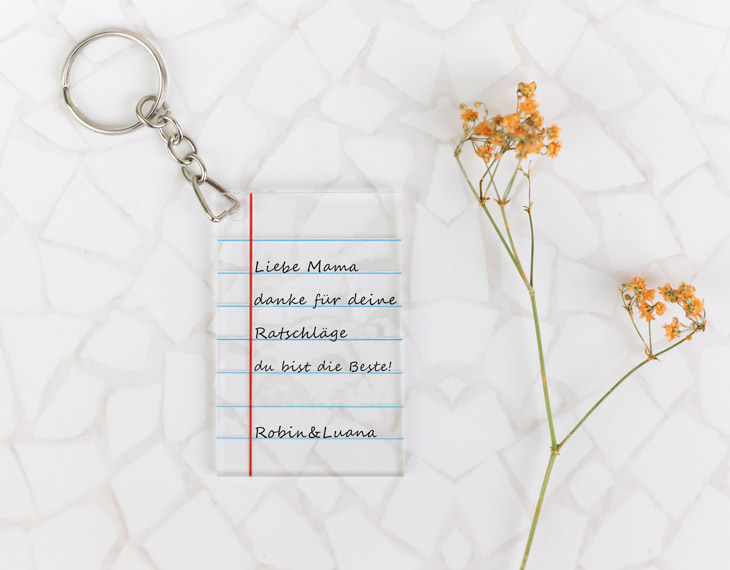 Liebe Mama
danke für deine
Ratschläge
du bist die Beste!
Robin&Luana